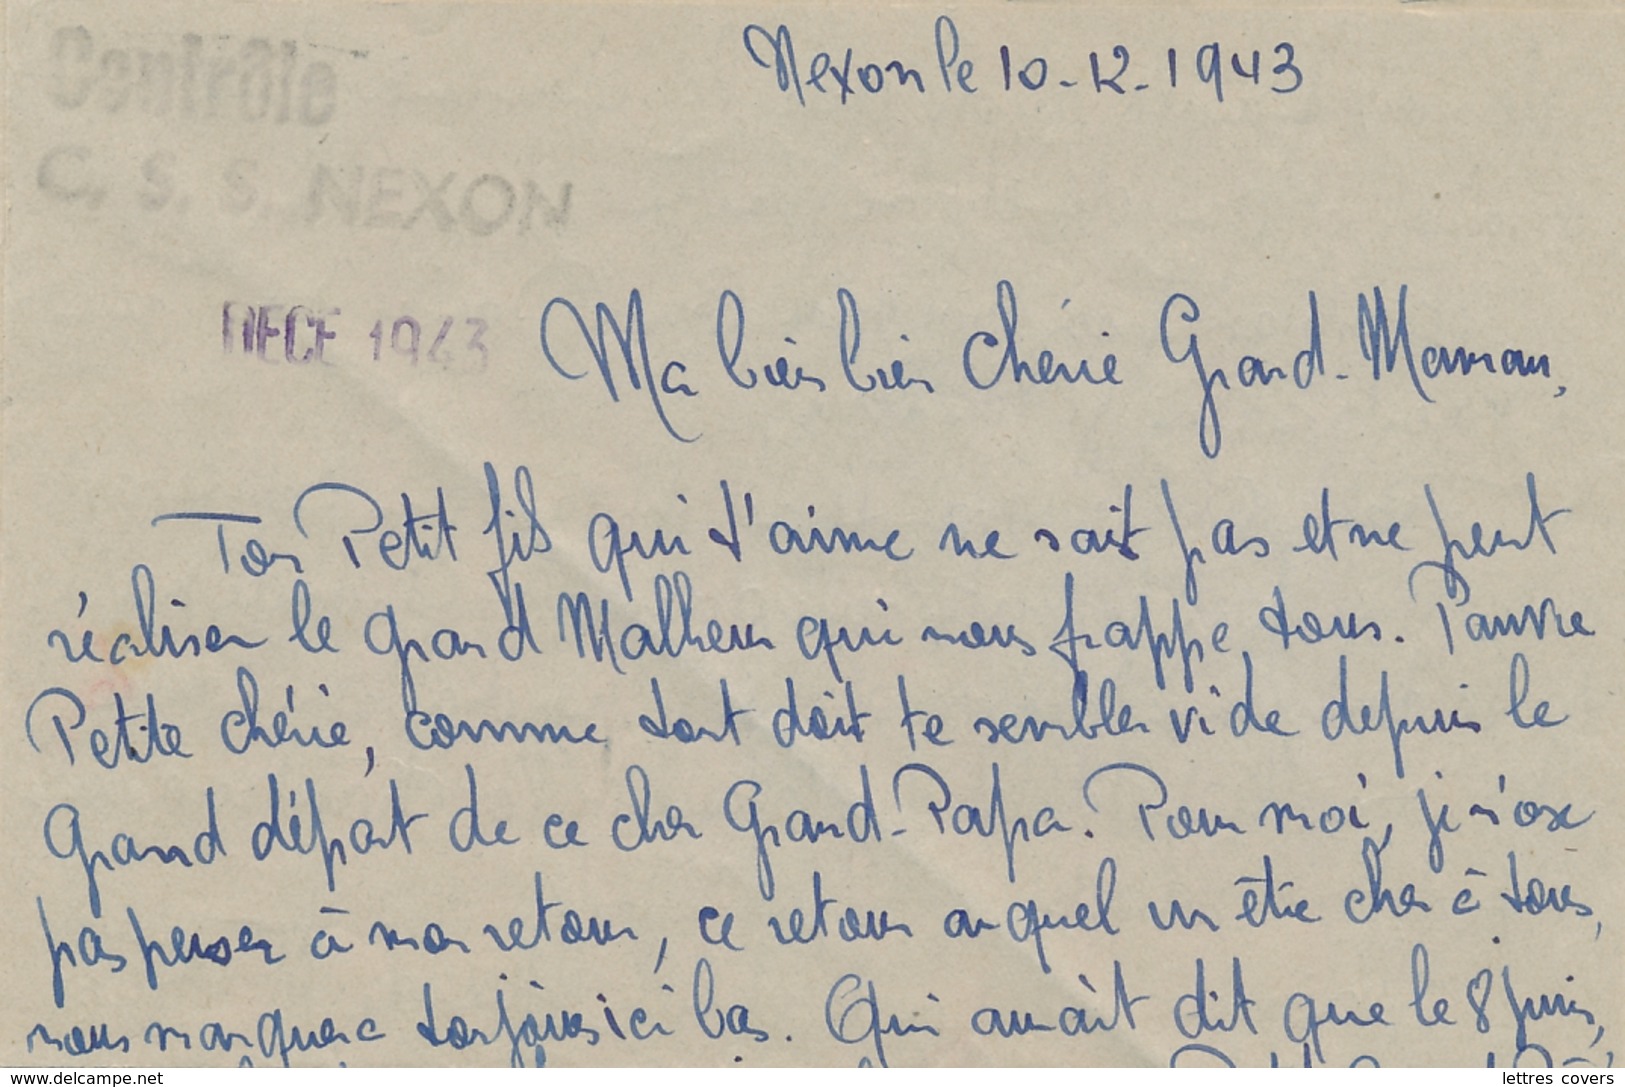 Contrôle
C. S. S. NEXON
DECE 1943
Nexon le 10-12-1943
Ma bien bien chérie Grand-Maman,
Ton Petit fils qui t'aime ne sait pas et ne peut
réaliser le grand Malheur qui nous frappe tous. Pauvre
Petite chérie, comme tout doit te sembler vide depuis le
Grand départ de ce cher Grand-Papa. Pour moi, je n'ose
pas penser à mon retour, ce retour auquel un être cher à tous,
nous manquera toujours ici bas. Qui aurait dit que le 8 juin,
delcampe.net
lettres covers